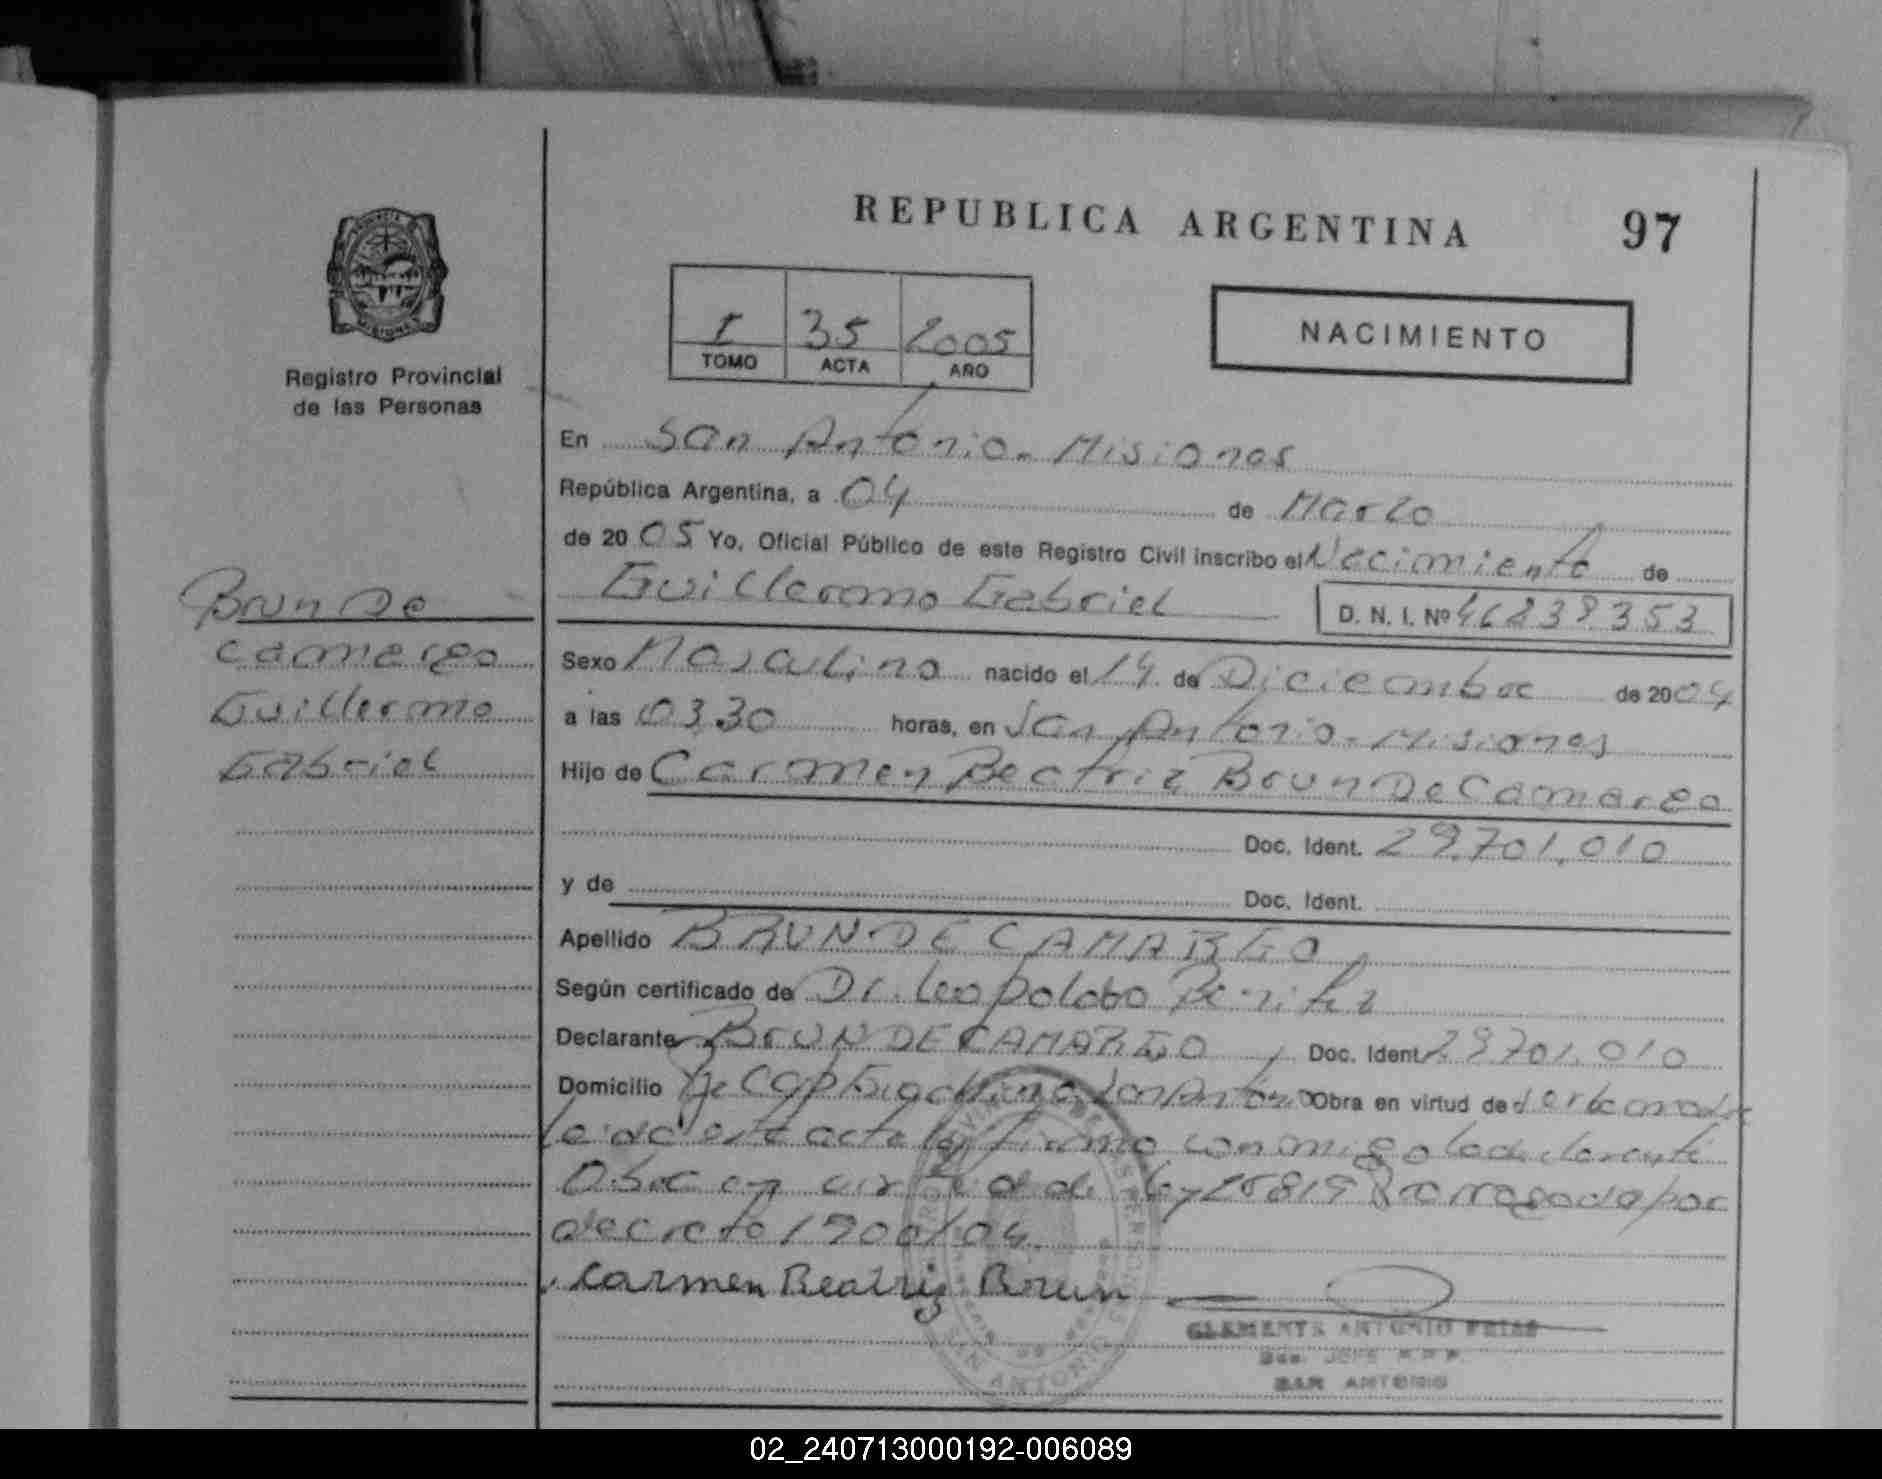 REPUBLICA ARGENTINA
97
PROVINCIA
MISIONES
Registro Provincial
de las Personas
I 35 2005
TOMO ACTA AÑO
NACIMIENTO
En San Antonio - Misiones
República Argentina, a 04 de Marzo
de 2005 Yo, Oficial Público de este Registro Civil inscribo el Nacimiento de
Guillermo Gabriel
D. N. I. Nº 46838353
Brun De
Camargo
Guillermo
Gabriel
Sexo Masculino nacido el 14 de Diciembre de 2004
a las 03,30 horas, en San Antonio - Misiones
Hijo de Carmen Beatriz Brun De Camargo
Doc. Ident. 29.701.010
y de Doc. Ident.
Apellido BRUN DE CAMARGO
Según certificado de Dr. Leopoldo Benitez
Declarante BRUN DE CAMARGO Doc. Ident. 29701.010
Domicilio San Antonio Obra en virtud de ser la madre
leida esta acta la firma conmigo la declarante
Obs: en virtud de Ley 25819 Prorrogada por
decreto 1900/04.
Carmen Beatriz Brun
CLEMENTE ANTONIO FRIAS
JEFE R P P
SAN ANTONIO
SAN ANTONIO
02_240713000192-006089